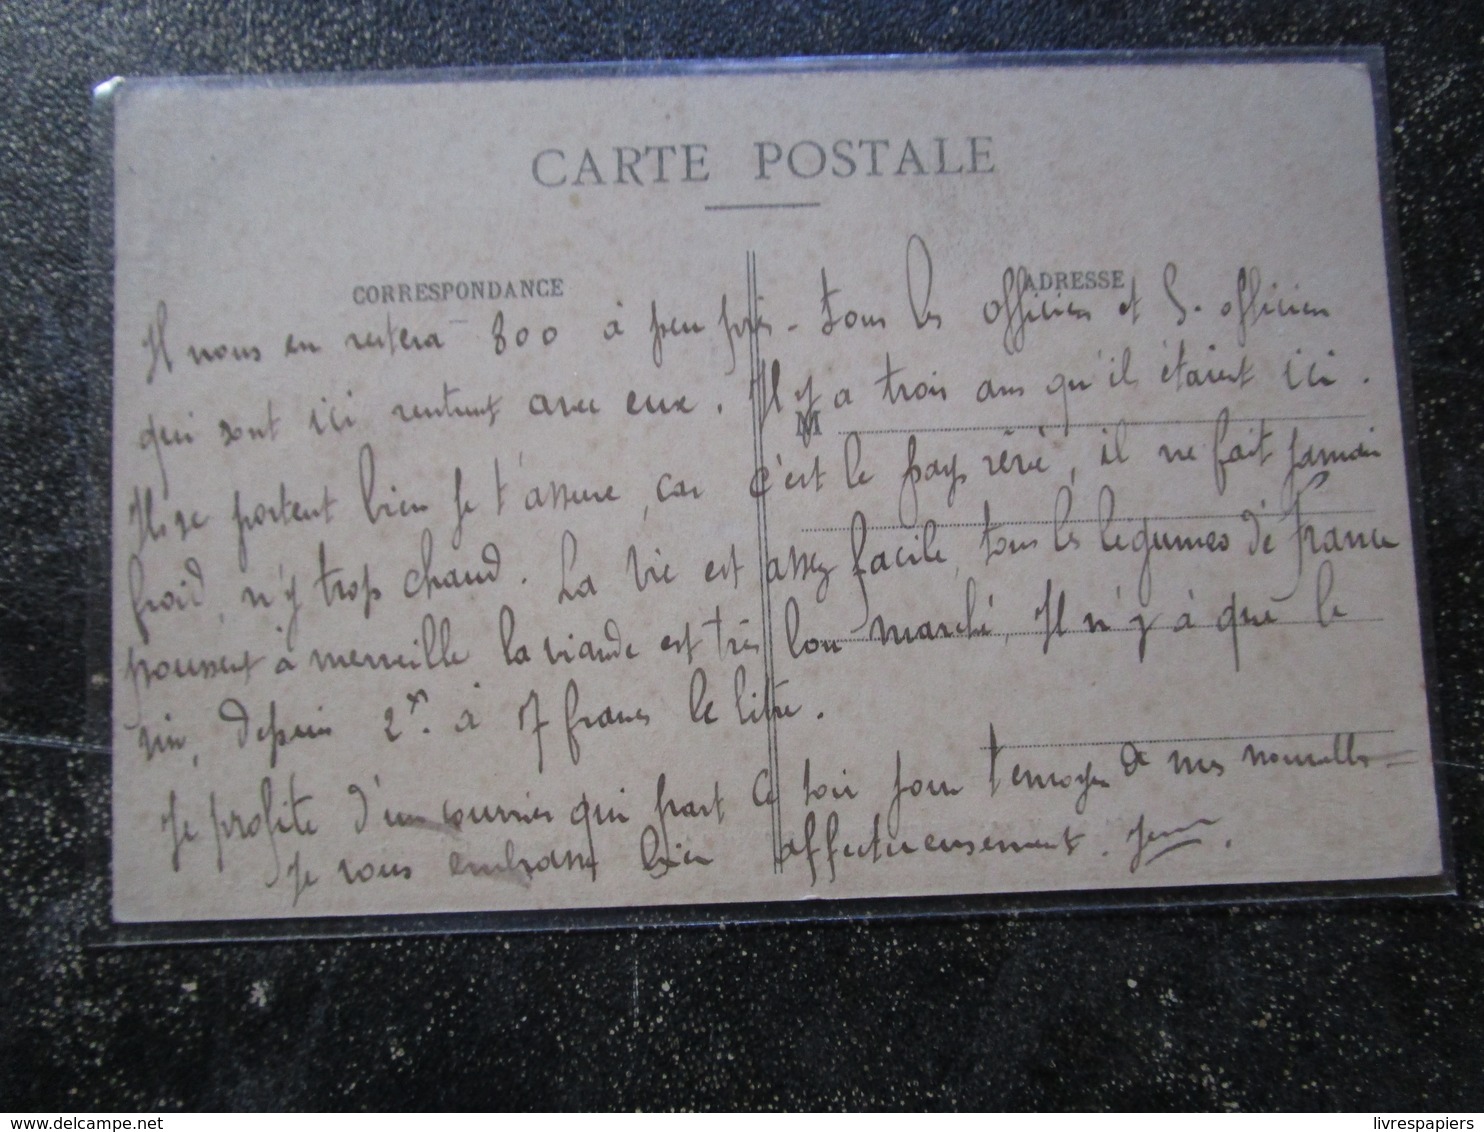 CARTE POSTALE
CORRESPONDANCE
ADRESSE
M
Il nous en restera 800 à peu près - tous les officiers et S. officiers
qui sont ici rentrent avec eux. Il y a trois ans qu'ils étaient ici.
Ils se portent bien je t'assure, car c'est le pays rêvé, il ne fait jamais
froid, n'y trop chaud. La vie est assez facile, tous les légumes de France
poussent à merveille la viande est très bon marché, Il n'y à que le
vin, depuis 2f. à 7 francs le litre.
Je profite d'un courrier qui part ce soir pour t'envoyer de mes nouvelles
Je vous embrasse bien affectueusement.
© delcampe.net
livrespapiers